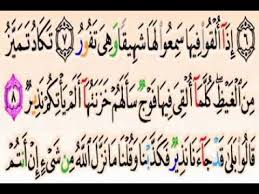 ٦ إِذَآ أُلْقُوا۟ فِيهَا سَمِعُوا۟ لَهَا شَهِيقًا وَهِىَ تَفُورُ ٧ تَكَادُ تَمَيَّزُ
مِنَ ٱلْغَيْظِ كُلَّمَآ أُلْقِىَ فِيهَا فَوْجٌ سَأَلَهُمْ خَزَنَتُهَآ أَلَمْ يَأْتِكُمْ نَذِيرٌ ٨
قَالُوا۟ بَلَىٰ قَدْ جَآءَنَا نَذِيرٌ فَكَذَّبْنَا وَقُلْنَا مَا نَزَّلَ ٱللَّهُ مِن شَىْءٍ إِنْ أَنتُمْ